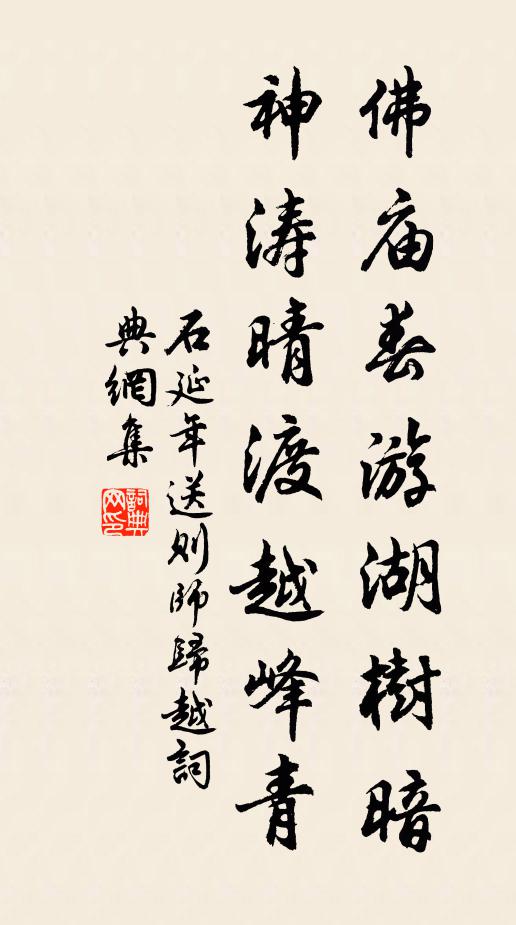 佛庙春游湖樹暗
神涛晴渡越峰青
石延年送则師歸越詞
典網集
詞典网印